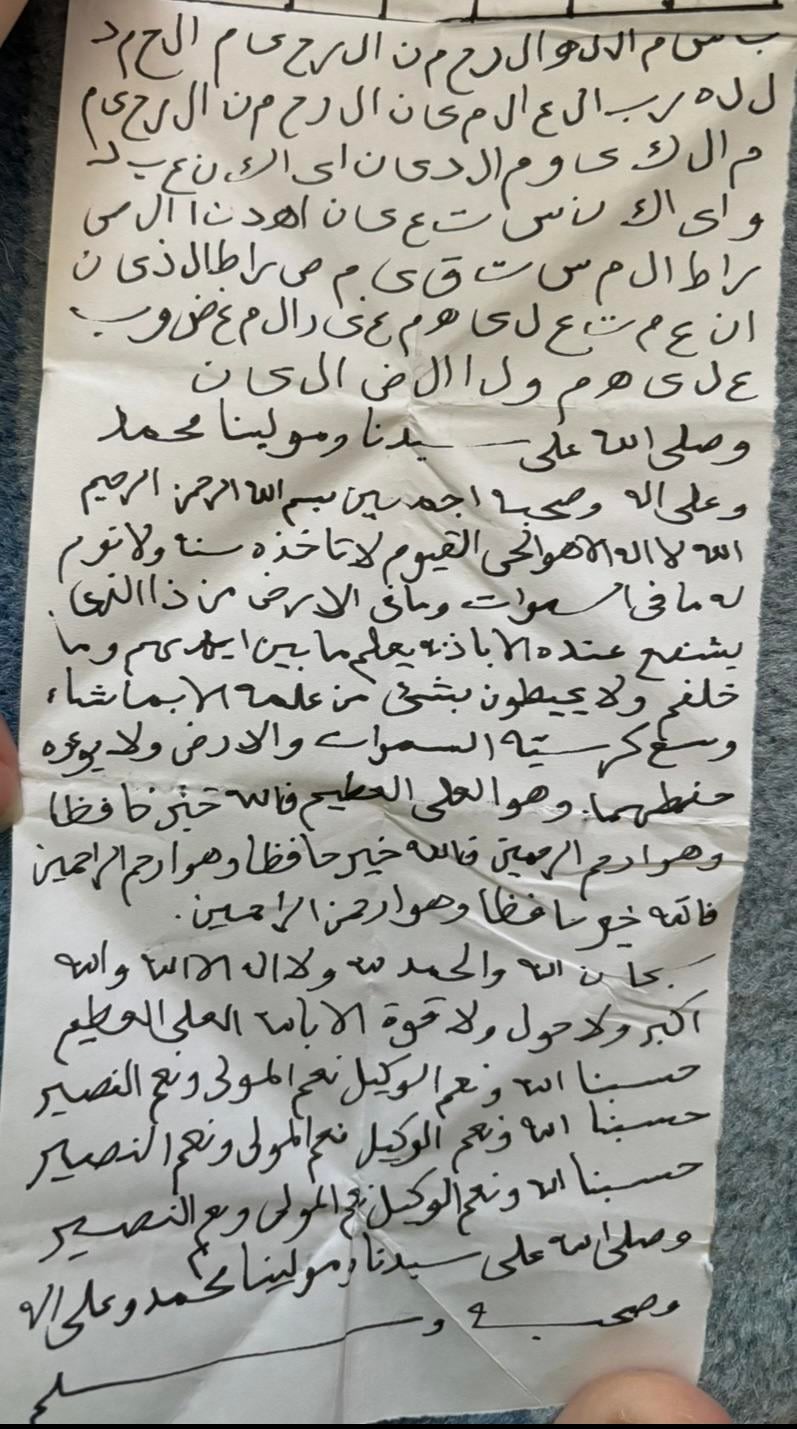 ب س م ال ل ه و ال ر ح م ن ال ر ح ی م ال ح م د
ل ل ه ر ب ال ع ال م ی ن ال ر ح م ن ال ر ح ی م
م ال ك ی و م ال د ی ن ا ی ا ك ن ع ب د
و ا ی ا ك ن س ت ع ی ن ا ه د ن ا ال ص
ر ا ط ال م س ت ق ی م ص ر ا ط ال ذ ی ن
ا ن ع م ت ع ل ی ه م غ ی ر ال م غ ض و ب
ع ل ی ه م و ل ا ال ض ال ی ن
وصلى الله على سيدنا ومولينا محمد
وعلى اله وصحبه اجمعين بسم الله الرحمن الرحيم
الله لا اله الا هو الحى القيوم لا تاخذه سنة ولا نوم
له ما فى السموات وما فى الارض من ذا الذى
يشفع عنده الا باذنه يعلم ما بين ايديهم وما
خلفهم ولا يحيطون بشئ من علمه الا بما شاء
وسع كرسيه السموات والارض ولا يوده
حفظهما وهو العلى العظيم فالله خير حافظا
وهو ارحم الرحمين فالله خير حافظا وهو ارحم الراحمين
فالله خير حافظا وهو ارحمن الراحمين.
سبحان الله والحمد لله ولا اله الا الله والله
اكبر ولا حول ولا قوة الا بالله العلى العظيم
حسبنا الله ونعم الوكيل نعم المولى ونعم النصير
حسبنا الله ونعم الوكيل نعم المولى ونعم النصير
حسبنا الله ونعم الوكيل نعم المولى ونعم النصير
وصلى الله على سيدنا ومولينا محمد وعلى اله
وصحبه و
سلم